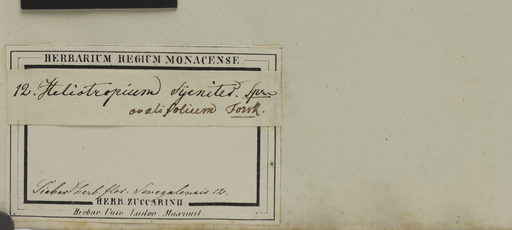 HERBARIUM REGIUM MONACENSE.
12. Heliotropium Syenites. Spr.
ovalifolium Forsk.
Sieber herb. flor. Senegalensis 12.
HERB. ZUCCARINII
Herbar. Univ. Ludov. Maximil.